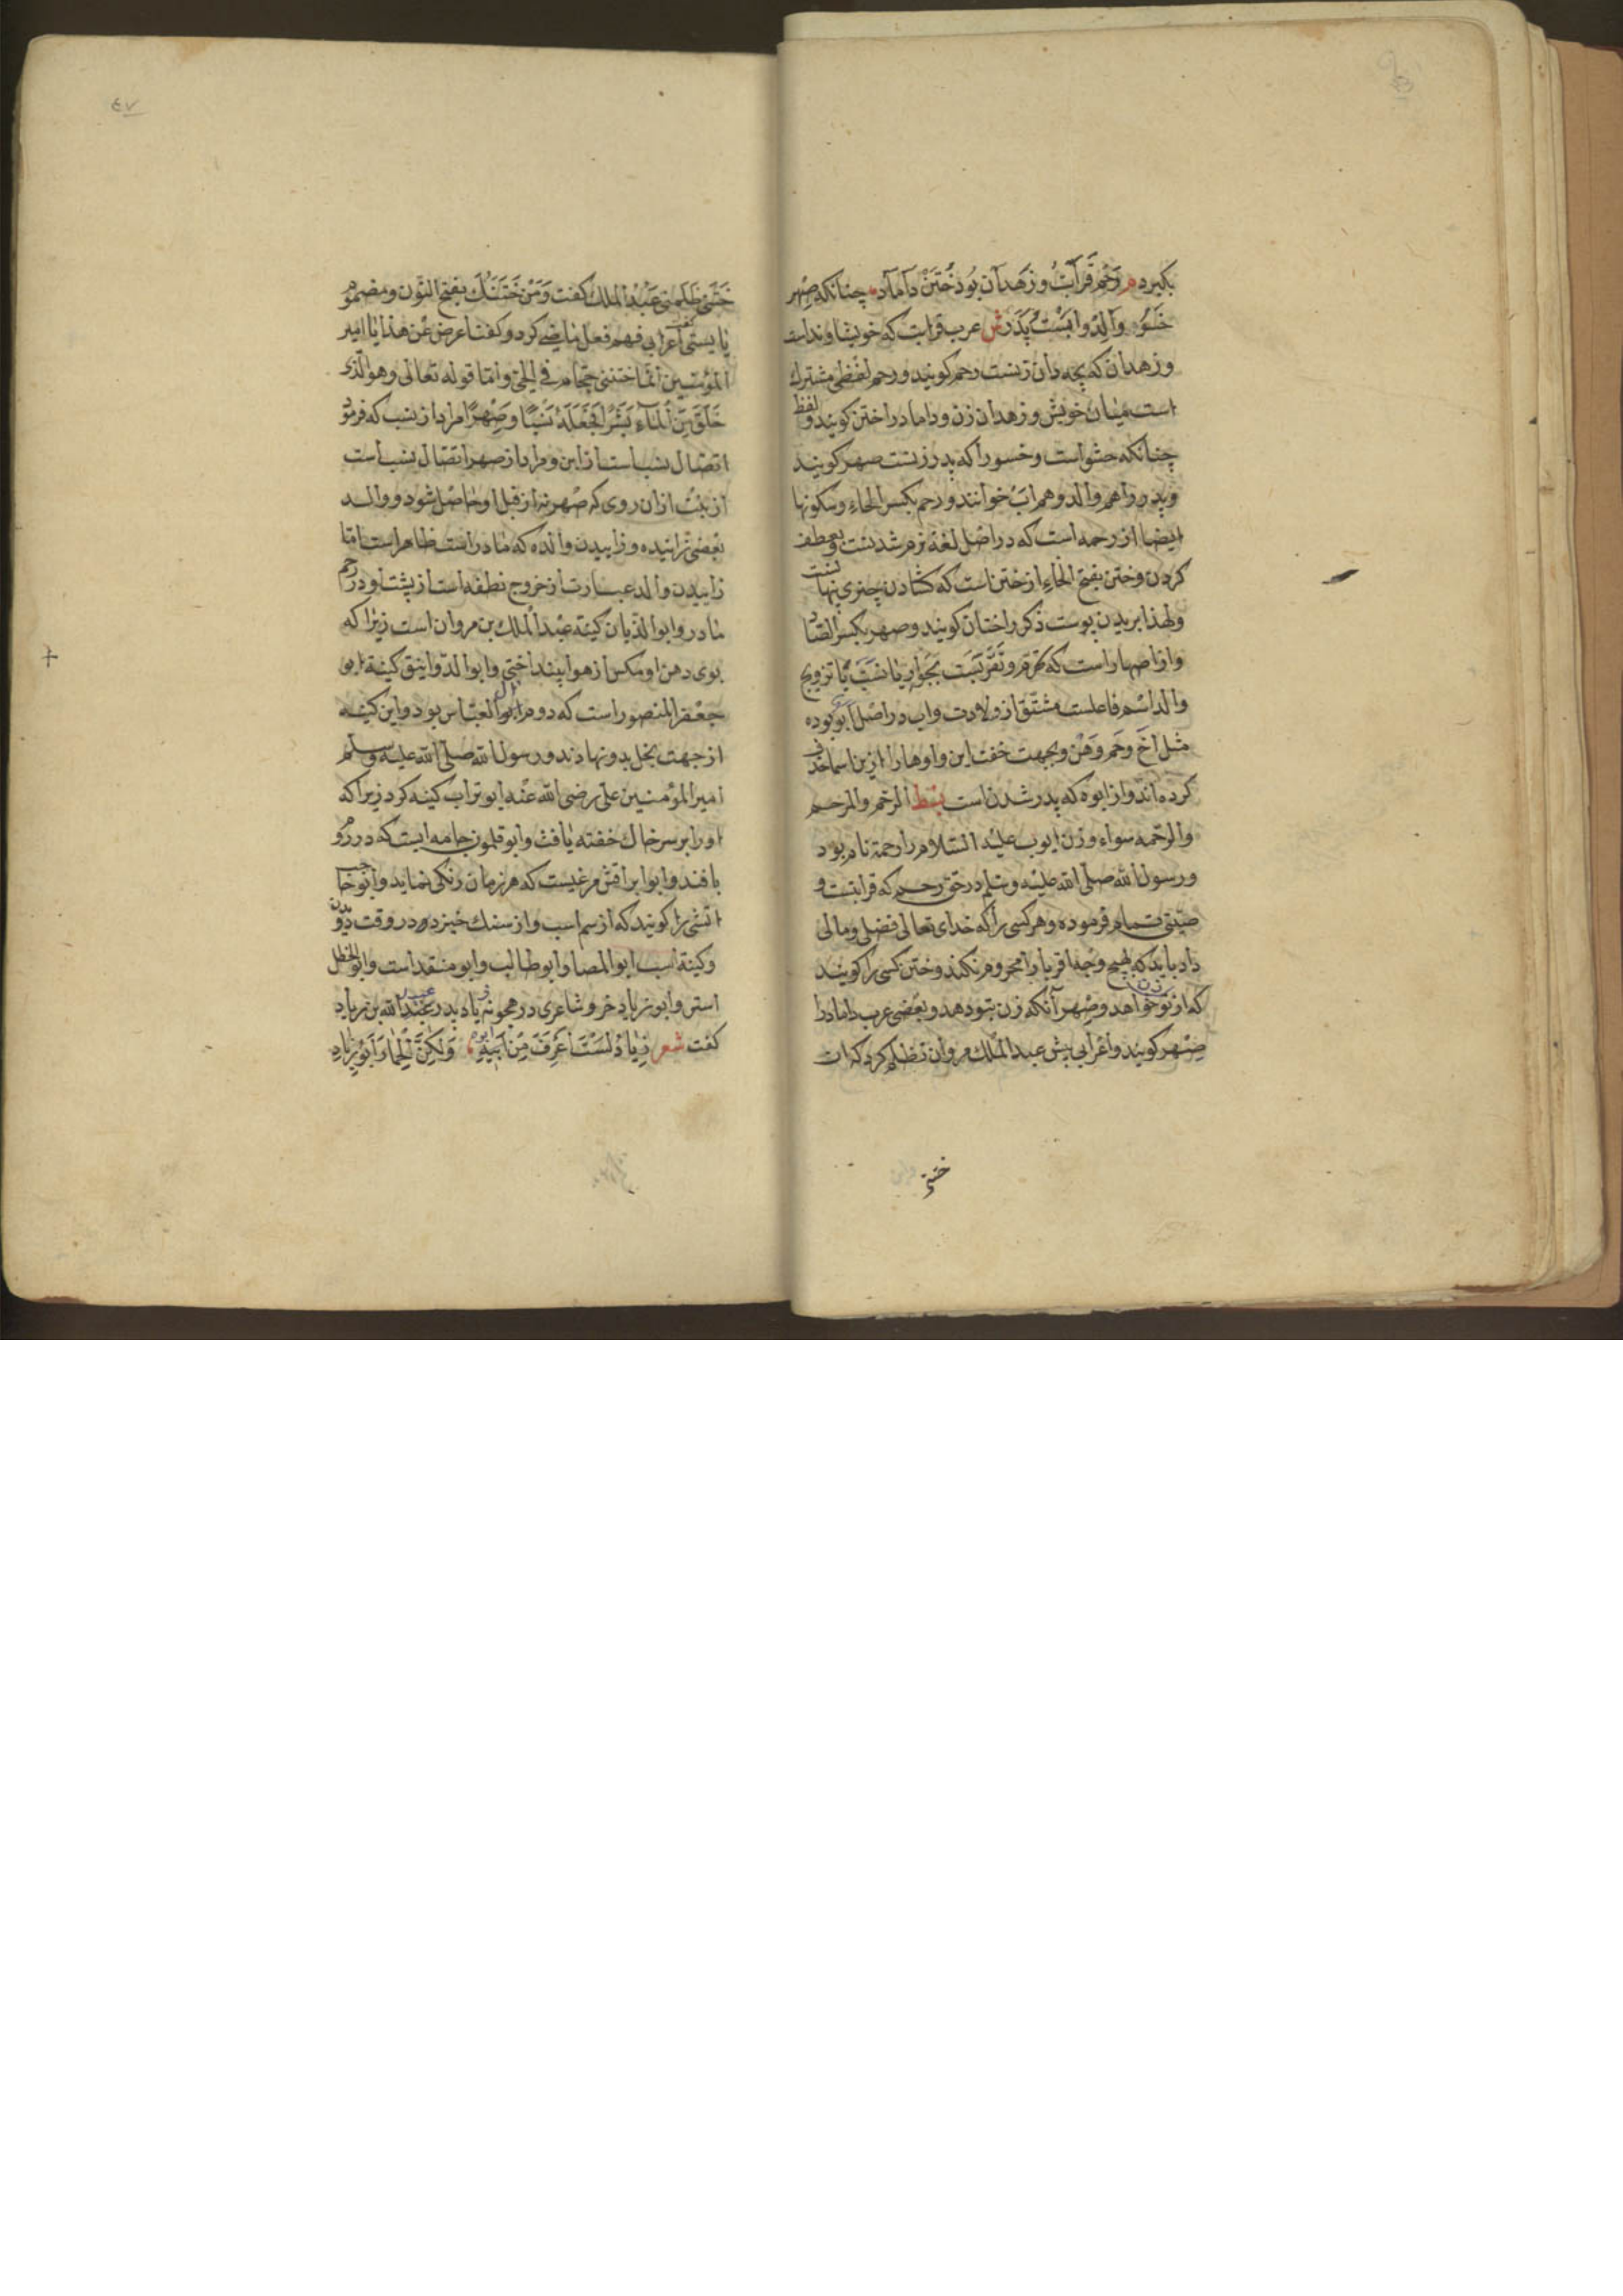 بكيرد م رحم قرابت و زهدان بود ختن داماد چنانكه صهر
خسوه والد واب هست پدر ش عرب قرابت كه خويشاونداست
و زهدان كه بچه دان زنست رحم كويند و رحم لفظى مشترك
است ميان خويش و زهدان زن و داماد را ختن كويند و لفظ
چنانكه حشواست و خسور را كه پدر زنست صهر كويند
و پدر را هم والد و هم اب خوانند و رحم بكسر الحاء و سكونها
ايضا از رحمه است كه در اصل لغة نرم شدنست و بعطف
كردن و ختن بفتح الخاء از ختن است كه كشادن چيزى پنهانست
و لهذا بريدن پوست ذكر را ختان كويند و صهر بكسر الصاد
و از اصهار است كه تحرم و تقربست بجوار يا نسب يا تزويج
والد اسم فاعلست مشتق از ولادت و اب در اصل ابو بوده
مثل اخ و حم و هن و بجهت خفت اين واوها را ازين اسما حذف
كرده اند و از ابوه كه پدر شدن است بسط الرحم والمرحم
والرحمه سواء و زن ايوب عليه السلام را رحمة نام بود
و رسول الله صلى الله عليه وسلم در حق رحم كه قرابتست و
صيتى تمام فرموده و هر كسى را كه خداى تعالى فضلى و مالى
داد بايد كه بهيچ وجه اقربا را محروم نكند و ختن كسى را كويند
كه از تو زن خواهد و صهر آنكه زن بتو دهد و بعضى عرب داماد را
صهر كويند و اعرابى پيش عبد الملك مروان تظلم كرد كه ان
ختنى
٤٧
ختنى ظلمنى عبد الملك كفت و من ختنك بفتح النون و مضموم
يا يستى كفت اعرابى فهم فعل ماضى كرد و كفت اعرض عن هذا يا امير
المؤمنين انما ختننى حجام فى الحى و اما قوله تعالى وهو الذى
خلق من الماء بشرا فجعله نسبا وصهرا مراد از نسب كه فرمود
اتصال نسب است از ابن و مراد از صهر اتصال نسب است
از بنت ازان روى كه صهر نه از قبل او حاصل شود و والد
بعضى زاينده و زاييدن والده كه مادر است ظاهر است اما
زاييدن والد عبارت از خروج نطفه است از پشت او در رحم
مادر و ابو الذبان كنية عبد الملك بن مروان است زيرا كه
بوى دهن او مكس از هوا بينداختى و ابو الدوانيق كنية ابو
جعفر المنصور است كه دوم ال ابو العباس بود و اين كنيه
از جهت بخل بدو نهادند و رسول الله صلى الله عليه وسلم
امير المؤمنين على رضى الله عنه ابو تراب كنيه كرد زيرا كه
او را بر سر خاك خفته يافت و ابو قلمون جامه ايست كه در روم
بافند و ابو ابراقش مرغيست كه هر زمان رنكى نمايد و ابو حباحب
اتشى را كويند كه از سم اسب و از سنك خيزد در وقت دويدن
و كنية اسب ابو المضا و ابو طالب و ابو منقد است و ابو الخطل
استر و ابو زياد خر و شاعرى در هجو نه زياد پدر عبيد الله بن زياد
كفت شعر زياد لست اعرف من ابوه ولكن الحمار ابو زياد